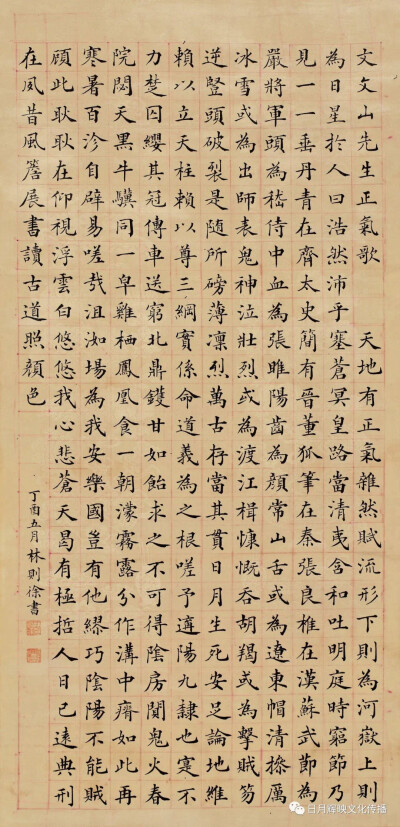 文文山先生正氣歌 天地有正氣雜然賦流形下則為河嶽上則
為日星於人曰浩然沛乎塞蒼冥皇路當清夷含和吐明庭時窮節乃
見一一垂丹青在齊太史簡有晉董狐筆在秦張良椎在漢蘇武節為
嚴將軍頭為嵇侍中血為張睢陽齒為顏常山舌或為遼東帽清操厲
冰雪或為出師表鬼神泣壯烈或為渡江楫慷慨吞胡羯或為擊賊笏
逆豎頭破裂是隨所磅薄凜烈萬古存當其貫日月生死安足論地維
賴以立天柱賴以尊三綱實係命道義為之根嗟予遘陽九隸也寔不
力楚囚纓其冠傳車送窮北鼎鑊甘如飴求之不可得陰房闃鬼火春
院閟天黑牛驥同一皁雞栖鳳凰食一朝濛霧露分作溝中瘠如此再
寒暑百沴自辟易嗟哉沮洳場為我安樂國豈有他繆巧陰陽不能賊
顧此耿耿在仰視浮雲白悠悠我心悲蒼天曷有極哲人日已遠典刑
在夙昔風簷展書讀古道照顏色
丁酉五月林則徐書
日月辉映文化传播